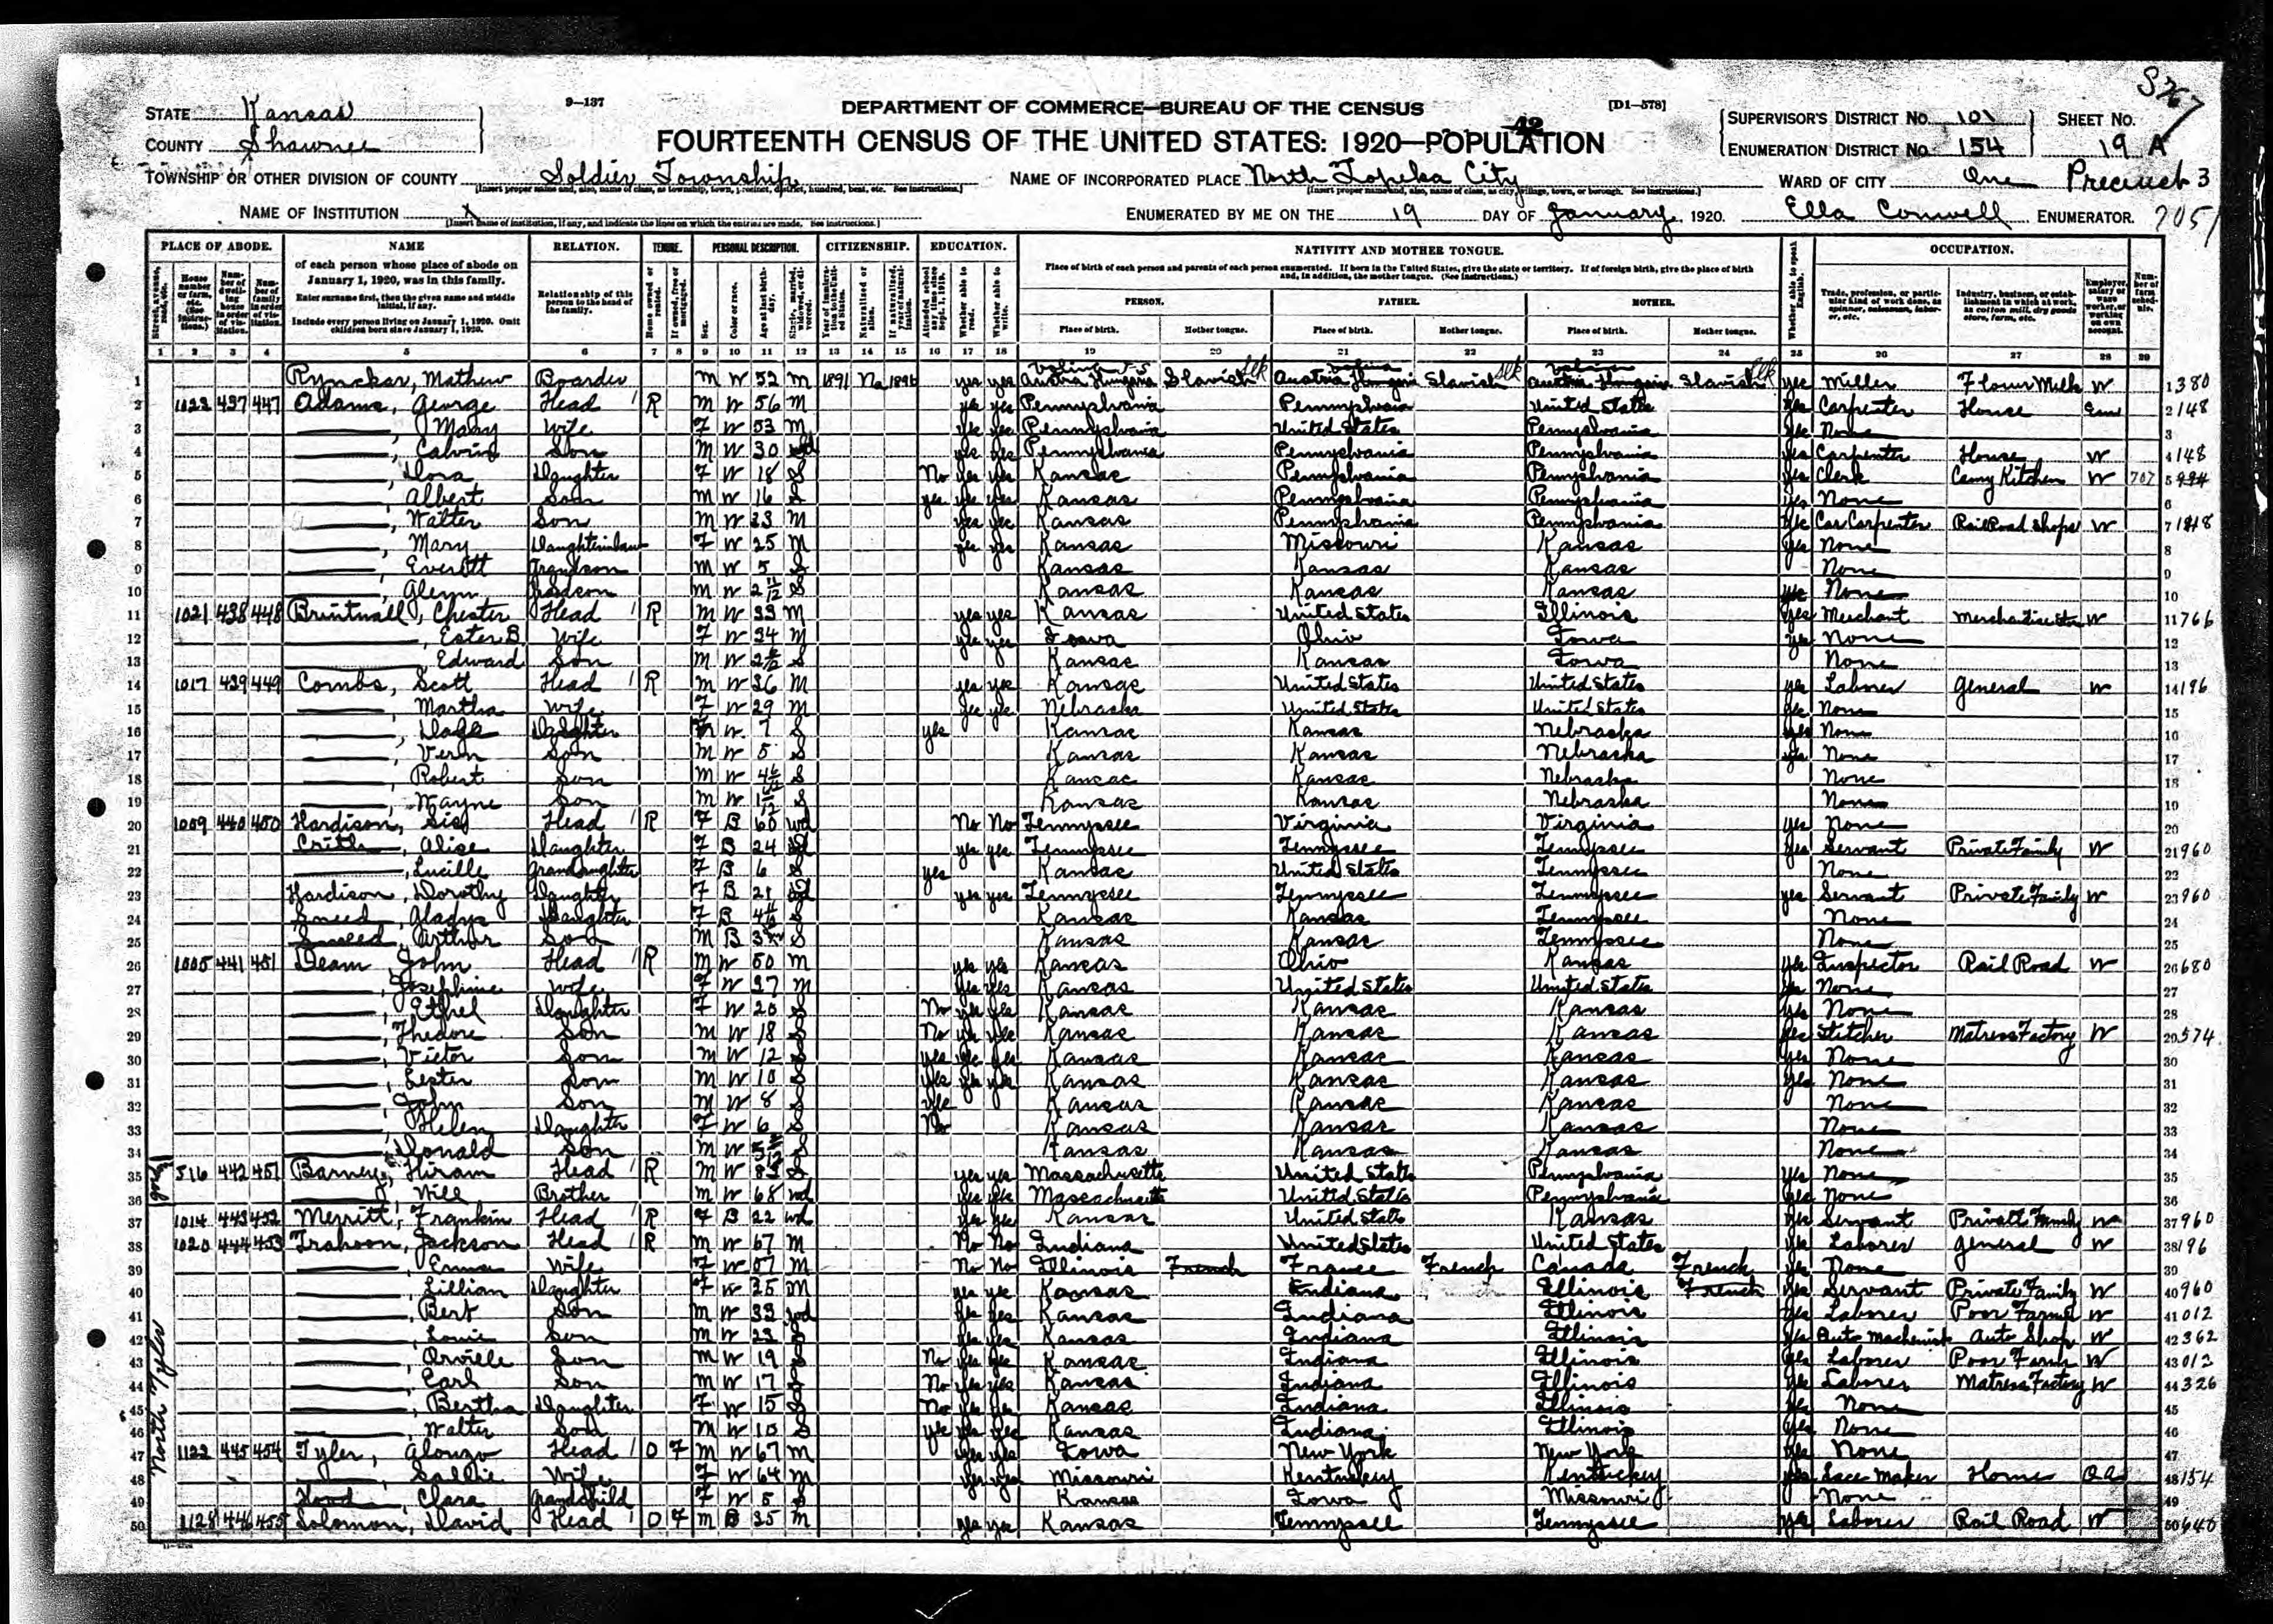 S267
STATE Kansas
9—137
DEPARTMENT OF COMMERCE—BUREAU OF THE CENSUS
[D1—578]
COUNTY Shawnee
FOURTEENTH CENSUS OF THE UNITED STATES: 1920—POPULATION
SUPERVISOR'S DISTRICT No. 101
SHEET No.
ENUMERATION DISTRICT No. 154
19 A
TOWNSHIP OR OTHER DIVISION OF COUNTY Soldier Township
NAME OF INCORPORATED PLACE North Topeka City
WARD OF CITY One Precinct 3
NAME OF INSTITUTION X
ENUMERATED BY ME ON THE 19 DAY OF January, 1920. Ella Conwell ENUMERATOR. 7051
PLACE OF ABODE. NAME RELATION. TENURE. PERSONAL DESCRIPTION. CITIZENSHIP. EDUCATION. NATIVITY AND MOTHER TONGUE. OCCUPATION.
of each person whose place of abode on January 1, 1920, was in this family.
Enter surname first, then the given name and middle initial, if any.
Include every person living on January 1, 1920. Omit children born since January 1, 1920.
Relationship of this person to the head of the family.
Place of birth of each person and parents of each person enumerated. If born in the United States, give the state or territory. If of foreign birth, give the place of birth and, in addition, the mother tongue. (See instructions.)
PERSON. FATHER. MOTHER.
Place of birth. Mother tongue. Place of birth. Mother tongue. Place of birth. Mother tongue.
1 2 3 4 5 6 7 8 9 10 11 12 13 14 15 16 17 18 19 20 21 22 23 24 25 26 27 28 29
1 Mathew Boarder M W 52 M 1891 Na 1896 yes yes Austria Hungaria Slavish Austria Hungaria Slavish Austria Hungaria Slavish yes Miller Flour Mill W 1 380
2 1023 437 447 Adams, George Head R M W 56 M yes yes Pennsylvania Pennsylvania United States yes Carpenter House Em 2 148
3 , Mary Wife F W 53 M yes yes Pennsylvania United States Pennsylvania yes None 3
4 , Calvin Son M W 30 wd yes yes Pennsylvania Pennsylvania Pennsylvania yes Carpenter House W 4 148
5 , Dora Daughter F W 18 S No yes yes Kansas Pennsylvania Pennsylvania yes Clerk Kitchen W 707 5
6 , Albert Son M W 16 S yes yes yes Kansas Pennsylvania Pennsylvania yes None 6
7 , Walter Son M W 23 M yes yes Kansas Pennsylvania Pennsylvania yes Car Carpenter RailRoad Shops W 7
8 , Mary Daughterinlaw F W 25 M yes yes Kansas Missouri Kansas yes None 8
9 , Everett Grandson M W 5 S Kansas Kansas Kansas None 9
10 , Glenn M W S Kansas Kansas Kansas None 10
11 1021 438 448 Chester Head R M W 33 M yes yes Kansas United States Illinois yes Merchant W 11 766
12 , Ester B Wife F W 34 M yes yes Iowa Ohio Iowa yes None 12
13 , Edward Son M W S Kansas Kansas Iowa None 13
14 1017 439 449 Combs, Scott Head R M W 36 M yes yes Kansas United States United States yes Laborer General W 14 196
15 , Martha Wife F W 29 M yes yes Nebraska United States United States yes None 15
16 Daughter W 7 S yes Kansas Kansas Nebraska yes None 16
17 , Vern Son M W 5 S Kansas Kansas Nebraska yes None 17
18 , Robert Son M W S Kansas Kansas Nebraska None 18
19 , Wayne Son M W S Kansas Kansas Nebraska None 19
20 1009 440 450 Hardison, Sis Head R F B 60 wd No No Tennyssee Virginia Virginia yes None 20
21 , Alice Daughter F B 24 yes yes Tennyssee Tennyssee Tennyssee yes Servant Private Family W 21 960
22 , Lucille Grandaughter F B 6 yes Kansas United States Tennyssee None 22
23 Hardison, Dorothy Daughter F B 21 yes yes Tennyssee Tennyssee Tennyssee yes Servant Private Family W 23 960
24 Sneed, Gladys Daughter F B S Kansas Kansas Tennyssee None 24
25 Sneed, Arthur Son M B S Kansas Kansas Tennyssee None 25
26 1005 441 451 Deam, John Head R M W 50 M yes yes Kansas Ohio Kansas yes Inspector Rail Road W 26 680
27 , Josephine Wife F W 37 M yes yes Kansas United States United States yes None 27
28 , Ethel Daughter F W 20 S No yes yes Kansas Kansas Kansas yes None 28
29 , Thedore Son M W 18 S No yes yes Kansas Kansas Kansas yes Stitcher Matress Factory W 29 574
30 , Victor Son M W 12 S yes yes yes Kansas Kansas Kansas yes None 30
31 , Lester Son M W 10 S yes yes yes Kansas Kansas Kansas yes None 31
32 , John Son M W 8 S yes Kansas Kansas Kansas None 32
33 , Helen Daughter F W 6 S No Kansas Kansas Kansas None 33
34 , Donald Son M W S Kansas Kansas Kansas None 34
35 516 442 451 Hiram Head R M W 83 S yes yes Massachusetts United States Pennsylvania yes None 35
36 , Will Brother M W 68 wd yes yes Massachusetts United States Pennsylvania yes None 36
37 1014 443 452 Merritt, Frankin Head R F B 22 wd yes yes Kansas United States Kansas yes Servant Private Family W 37 960
38 1020 444 453 Trahoon, Jackson Head R M W 67 M No No Indiana United States United States yes Laborer General W 38 196
39 , Emma Wife F W 57 M No No Illinois French France French Canada French yes None 39
40 , Lillian Daughter F W 35 M yes yes Kansas Indiana Illinois French yes Servant Private Family W 40 960
41 , Bert Son M W 33 wd yes yes Kansas Indiana Illinois yes Laborer Poor Farm W 41 012
42 , Louie Son M W 23 S yes yes Kansas Indiana Illinois yes Auto Machenist Auto Shop W 42 362
43 , Orville Son M W 19 S No yes yes Kansas Indiana Illinois yes Laborer Poor Farm W 43 012
44 , Earl Son M W 17 S No yes yes Kansas Indiana Illinois yes Laborer Matress Factory W 44 326
45 , Bertha Daughter F W 15 S No yes yes Kansas Indiana Illinois yes None 45
46 , Walter Son M W 10 S yes yes yes Kansas Indiana Illinois yes None 46
47 1122 445 454 Tyler, Alonzo Head O F M W 67 M yes yes Iowa New York New York yes None 47
48 , Sallie Wife F W 64 M yes yes Missouri Kentuckey Kentuckey yes Lace Maker Home O a 48 154
49 Hood, Clara Grandchild F W 5 S Kansas Iowa Missouri None 49
50 1128 446 455 Solomon, David Head O F M B 35 M yes yes Kansas Tennyssee Tennyssee yes Laborer Rail Road W 50 640
North Tyler